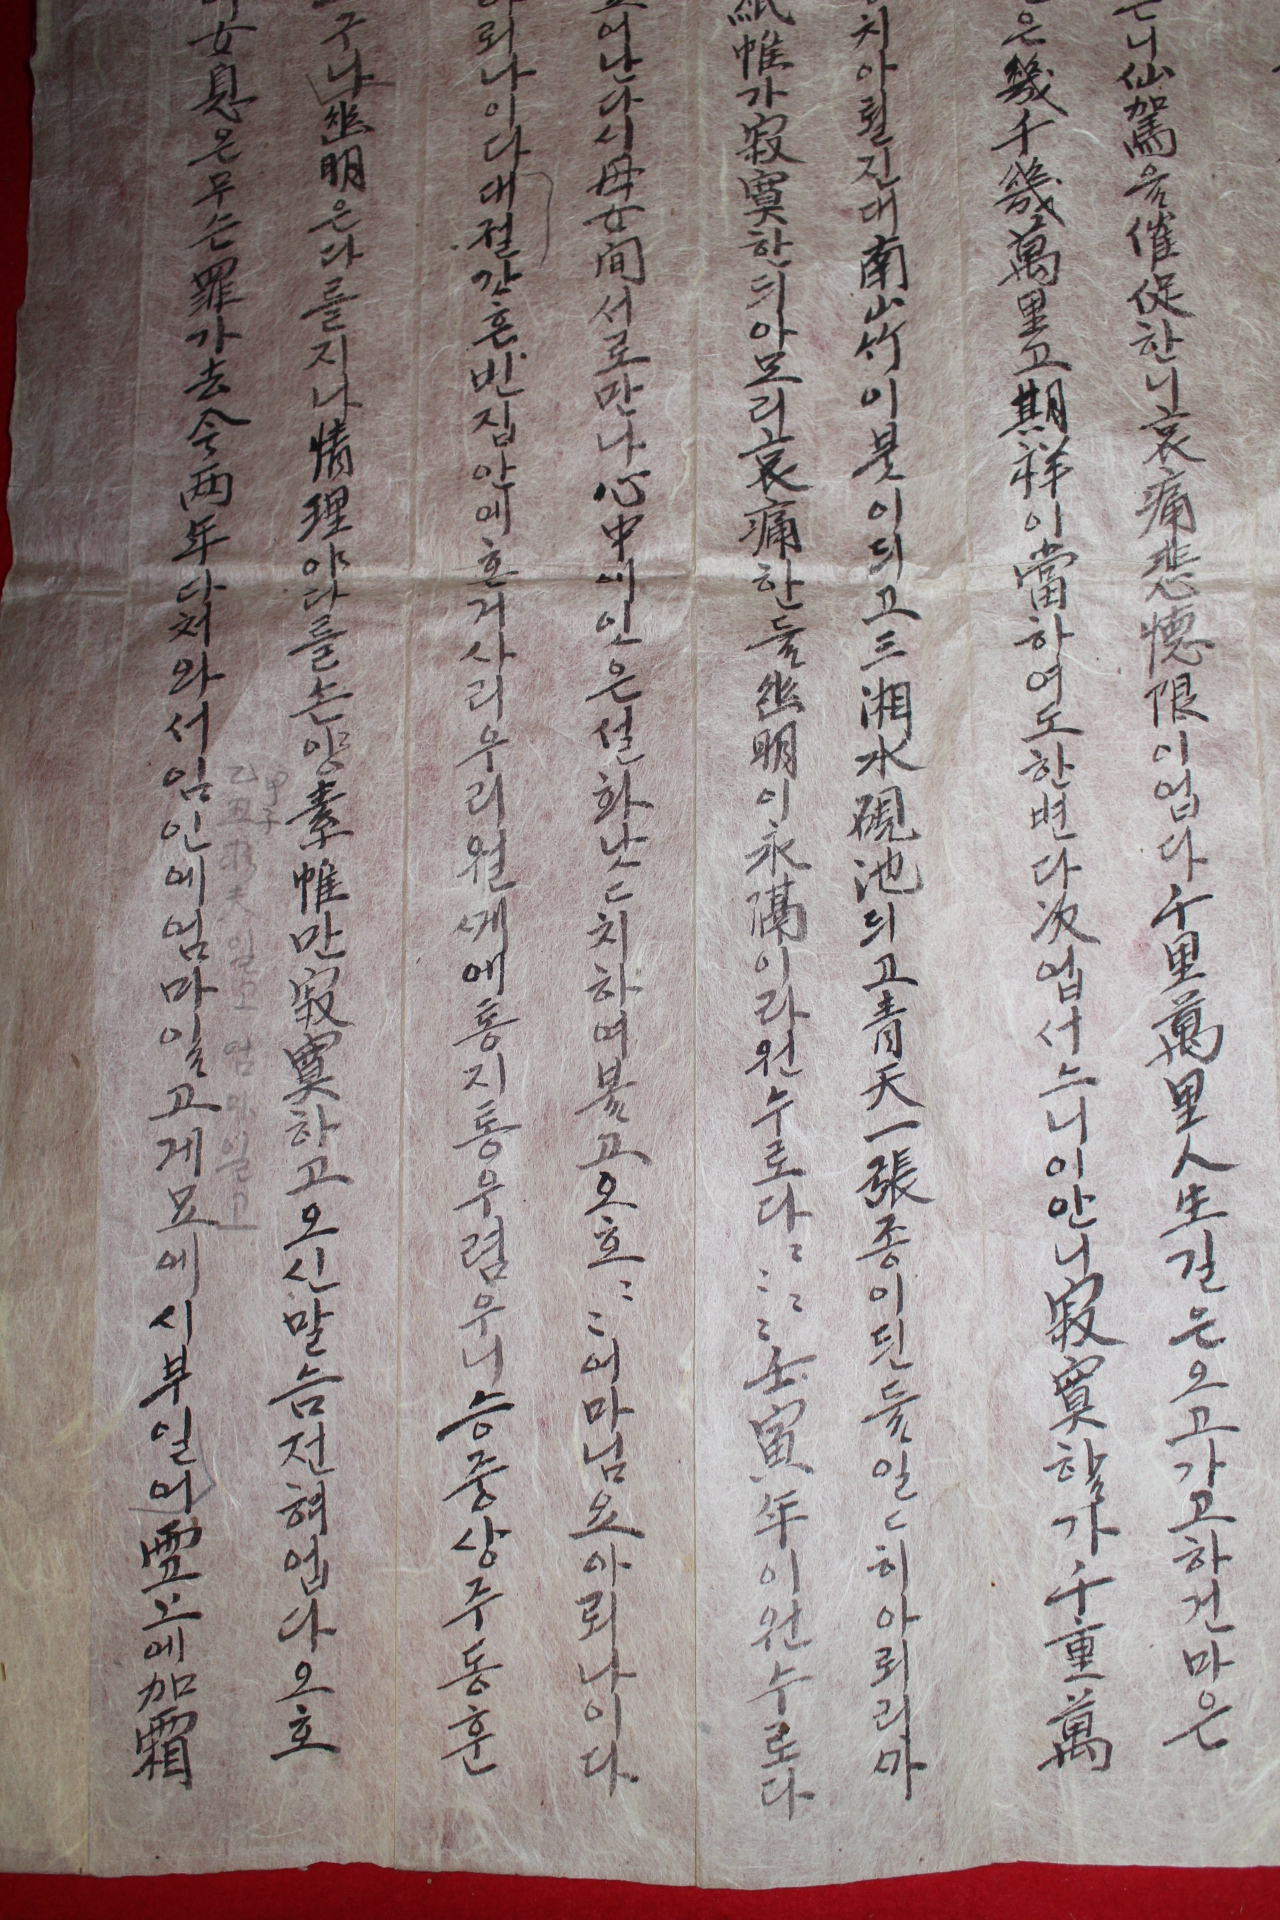 은니仙駕을催促한니哀痛悲懷限이업다千里萬里人生길은오고가고하건마은
은幾千幾萬里고期祥이當하여도한번다次업서스니이안니寂寞할가千重萬
치아뢸진대南山竹이붓이되고三湘水硯池되고靑天一張종이된들일〻히아뢰리마
紙帷가寂寞한듸아모리哀痛한들幽明이永隔이라원수로다〻〻〻壬寅年이원수로다
어난다시母女間서로만나心中에잇은설화낫〻치하여볼고오호〻〻어마님요아뢰나이다
뢰나이다대절간흔빈집안에흔거사리우리원게애통지통우렴우니승중상주동훈
구나幽明은다를지나情理야다를손양素帷만寂寞하고오신말슴전혀업다오호
女息은무슨罪가去今兩年다처와서임인에엄마일고게묘에시부일어雪上에加霜
甲子
乙丑 일고 엄마일고